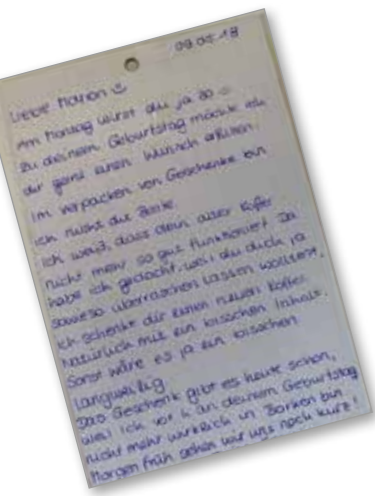 09.05.18
Liebe Marion ☺
Am Montag wirst du ja 30
zu deinem Geburtstag möchte ich
dir ganz einen Wunsch erfüllen.
Im verpacken von Geschenke bin
ich nicht die Beste.
Ich weiß, dass dein alter Koffer
nicht mehr so gut funktioniert. Da
habe ich gedacht, weil du dich ja
sowieso überraschen lassen wolltest,
ich schenke dir einen neuen Koffer.
Natürlich mit ein bisschen Inhalt.
Sonst wäre es ja ein bisschen
langweilig.
Das Geschenk gibt es heute schon,
weil ich an deinem Geburtstag
nicht mehr wirklich in Borken bin.
Morgen früh sehen wir uns noch kurz!